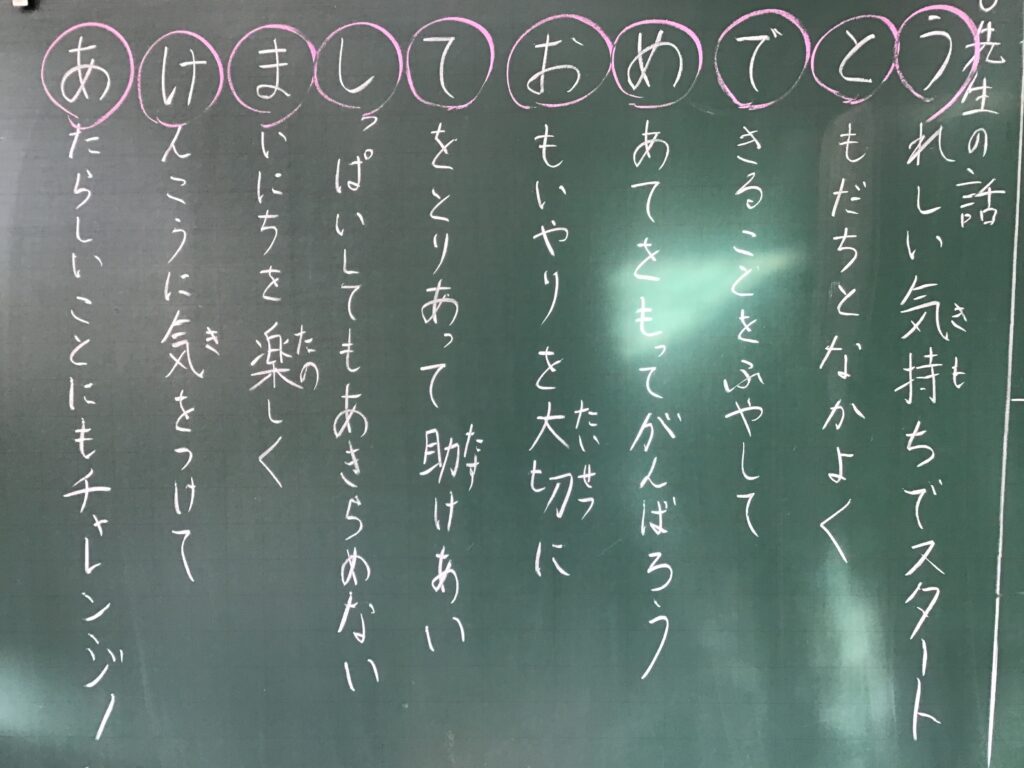 先生の話
あたらしいことにもチャレンジ！
けんこうに気をつけて
き
まいにちを楽しく
たの
しっぱいしてもあきらめない
てをとりあって助けあい
たす
おもいやりを大切に
たいせつ
めあてをもってがんばろう
できることをふやして
ともだちとなかよく
うれしい気持ちでスタート
きも